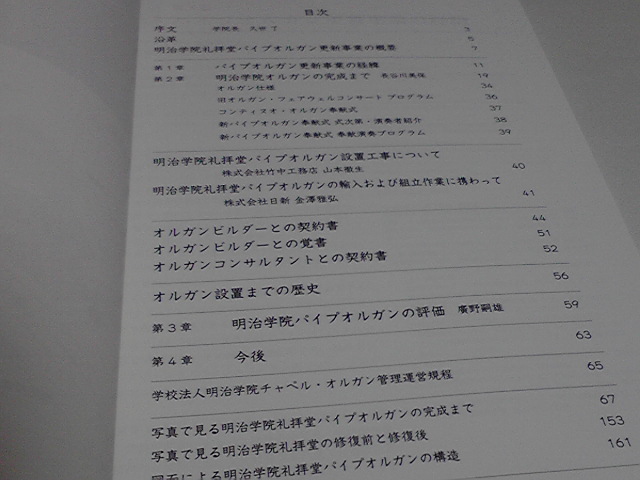 目次
序文 学院長 久世 了 3
沿革 5
明治学院礼拝堂パイプオルガン更新事業の概要 7
第1章 パイプオルガン更新事業の経緯 11
第2章 明治学院オルガンの完成まで 長谷川美保 19
オルガン仕様 34
旧オルガン・フェアウェルコンサート プログラム 36
コンティヌオ・オルガン奉献式 37
新パイプオルガン奉献式 式次第・演奏者紹介 38
新パイプオルガン奉献式 奉献演奏プログラム 39
明治学院礼拝堂パイプオルガン設置工事について
株式会社竹中工務店 山本徹生 40
明治学院礼拝堂パイプオルガンの輸入および組立作業に携わって
株式会社日新 金澤雅弘 41
オルガンビルダーとの契約書 44
オルガンビルダーとの覚書 51
オルガンコンサルタントとの契約書 52
オルガン設置までの歴史 56
第3章 明治学院パイプオルガンの評価 廣野嗣雄 59
第4章 今後 63
学校法人明治学院チャペル・オルガン管理運営規程 65
写真で見る明治学院礼拝堂パイプオルガンの完成まで 67
写真で見る明治学院礼拝堂の修復前と修復後 153
図面による明治学院礼拝堂パイプオルガンの構造 161